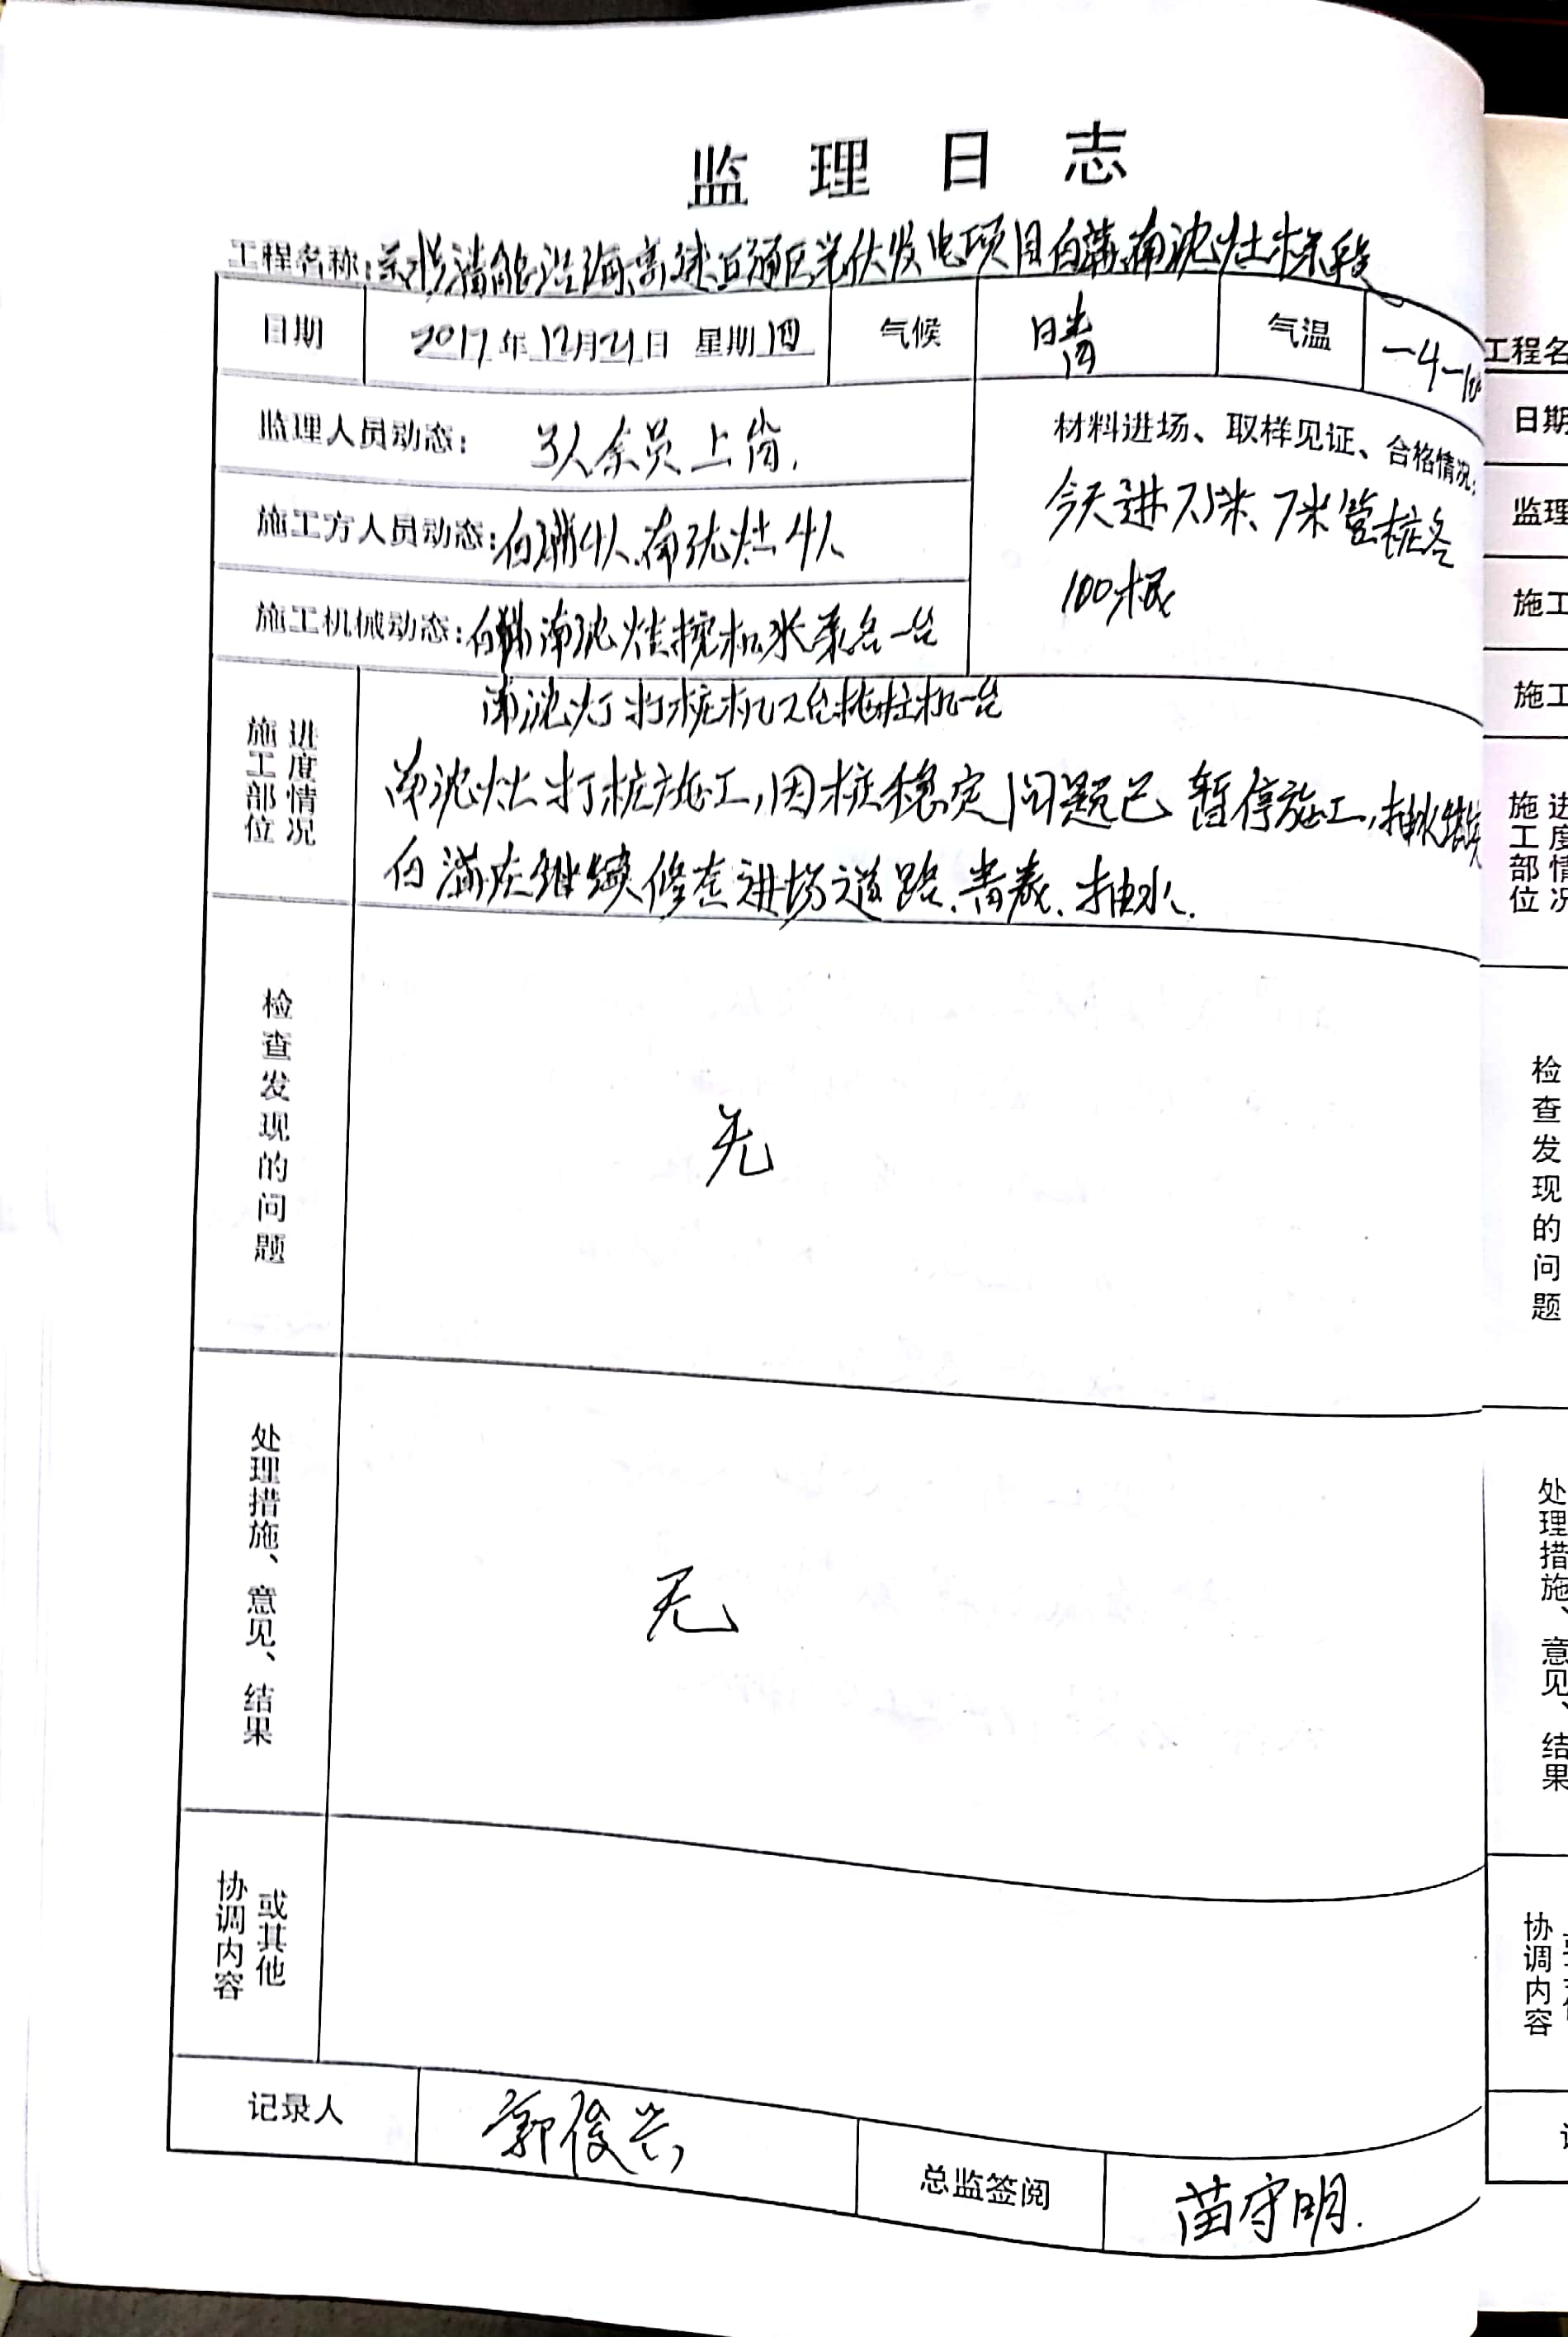 监理日志
工程名称:清能沿海高速互通区光伏发电项目白蒲、南沈灶标段
日期 2017年12月21日 星期四 气候 晴 气温 -4-10°
监理人员动态: 3人全员上岗.
材料进场、取样见证、合格情况:
今天进7.5米、7米管桩各
100根
施工方人员动态:白蒲4人、南沈灶4人
施工机械动态:白蒲南沈灶挖机水泵各一台
南沈灶打桩机2台拖桩机一台
施工部位 进度情况
南沈灶打桩施工,因桩稳定问题已暂停施工,抽水
白蒲在继续修在进场道路、清表、抽水.
检查发现的问题
无
处理措施、意见、结果
无
协调内容 或其他
记录人 郭俊兴
总监签阅 苗守明.
工程名
日期
监理
施工
施工
施工部位 进度情况
检查发现的问题
处理措施、意见、结果
协调内容